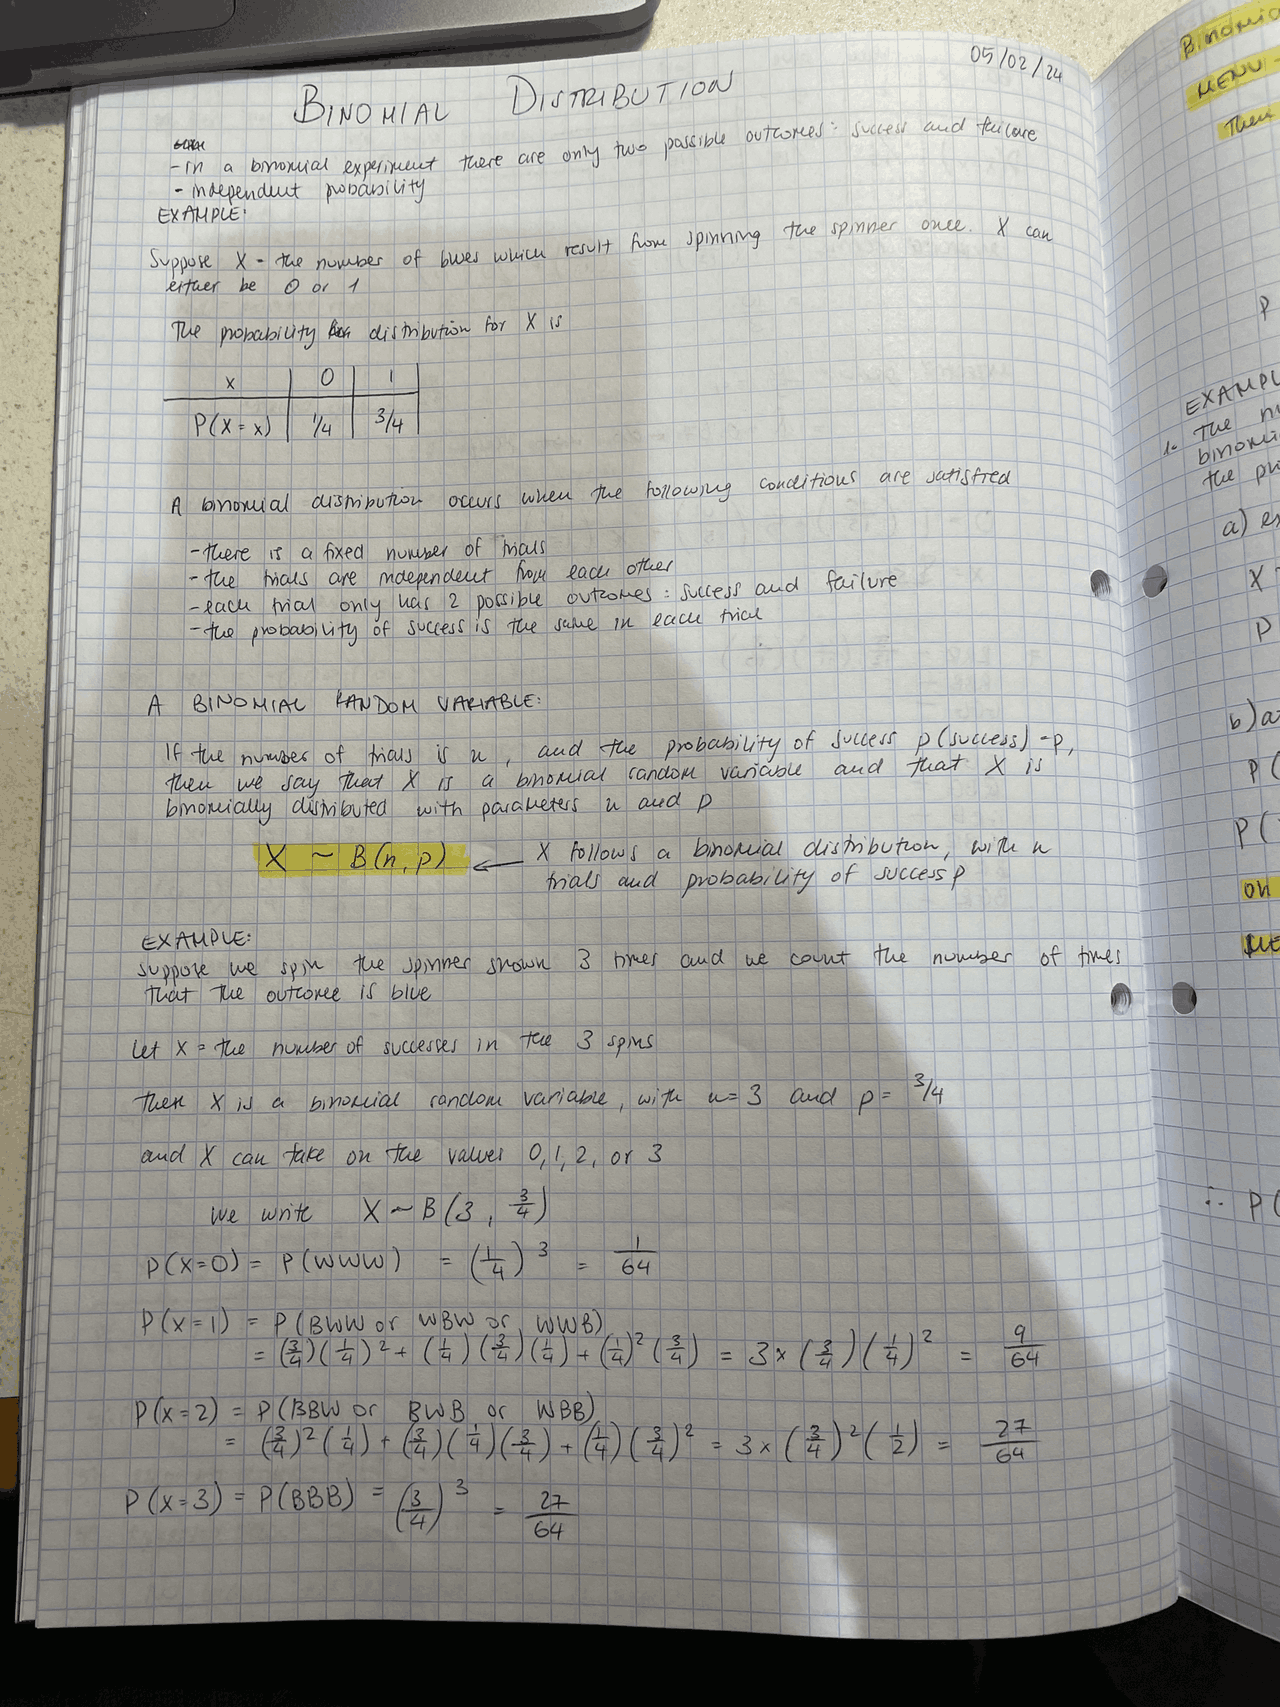 05/02/24
BINOMIAL DISTRIBUTION
- in a binomial experiment there are only two possible outcomes: success and failure
- independent probability
EXAMPLE:
Suppose X = the number of blues which result from spinning the spinner once. X can
either be 0 or 1
The probability distribution for X is
x | 0 | 1
P(X = x) | 1/4 | 3/4
A binomial distribution occurs when the following conditions are satisfied
- there is a fixed number of trials
- the trials are independent from each other
- each trial only has 2 possible outcomes: success and failure
- the probability of success is the same in each trial
A BINOMIAL RANDOM VARIABLE:
If the number of trials is n, and the probability of success p(success) = p,
then we say that X is a binomial random variable and that X is
binomially distributed with parameters n and p
X ~ B(n, p) ← X follows a binomial distribution, with n
trials and probability of success p
EXAMPLE:
suppose we spin the spinner shown 3 times and we count the number of times
that the outcome is blue
Let X = the number of successes in the 3 spins
then X is a binomial random variable, with n=3 and p= 3/4
and X can take on the values 0, 1, 2, or 3
we write X ~ B(3, 3/4)
P(X=0) = P(WWW) = (1/4)^3 = 1/64
P(X=1) = P(BWW or WBW or WWB)
= (3/4)(1/4)^2 + (1/4)(3/4)(1/4) + (1/4)^2(3/4) = 3×(3/4)(1/4)^2 = 9/64
P(X=2) = P(BBW or BWB or WBB)
= (3/4)^2(1/4) + (3/4)(1/4)(3/4) + (1/4)(3/4)^2 = 3×(3/4)^2(1/2) = 27/64
P(X=3) = P(BBB) = (3/4)^3 = 27/64
MENU
Then
P
1. The
the
a)
X
P
b)
P(
P(
∴ P(